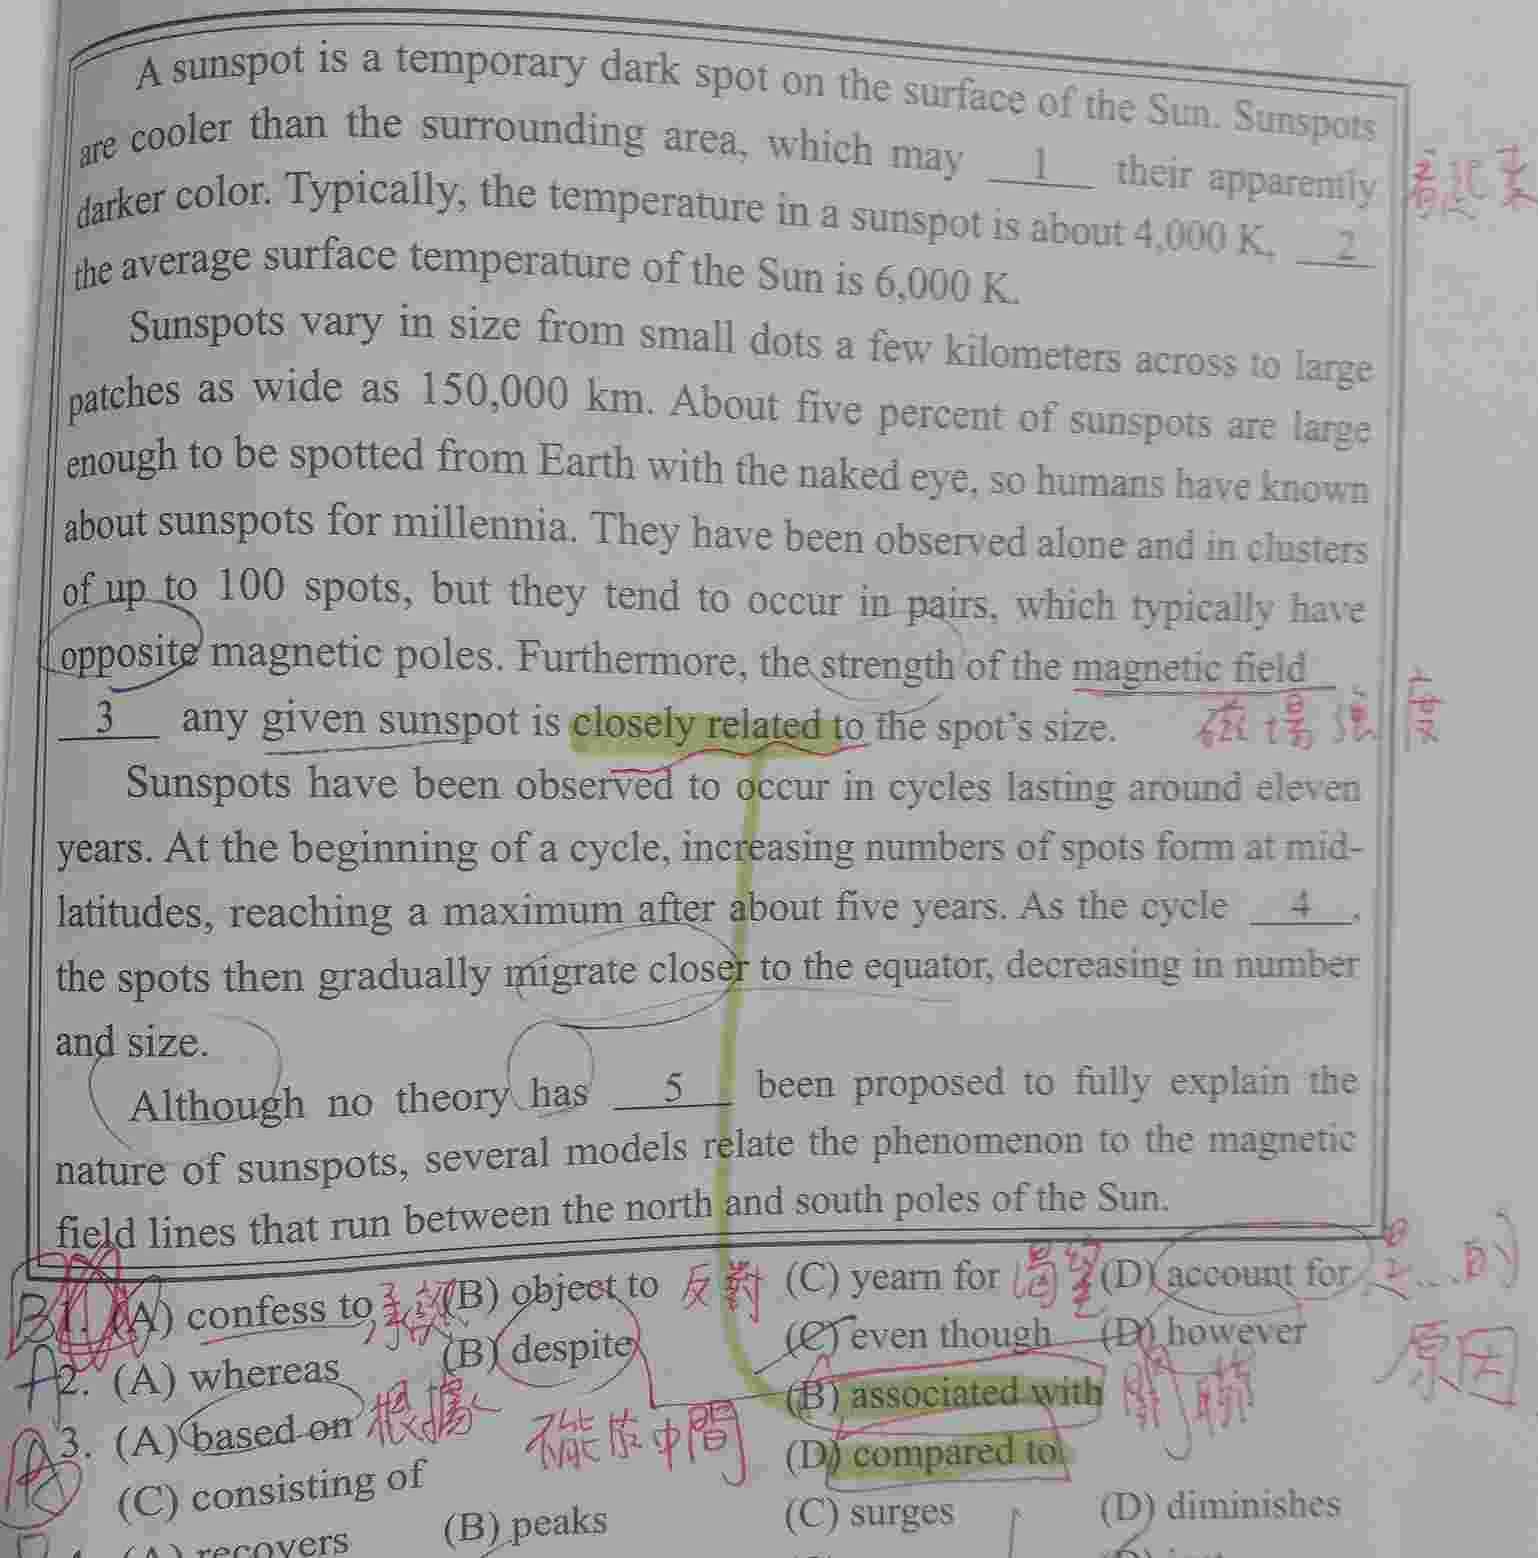 A sunspot is a temporary dark spot on the surface of the Sun. Sunspots
are cooler than the surrounding area, which may 1 their apparently
darker color. Typically, the temperature in a sunspot is about 4,000 K, 2
the average surface temperature of the Sun is 6,000 K.
Sunspots vary in size from small dots a few kilometers across to large
patches as wide as 150,000 km. About five percent of sunspots are large
enough to be spotted from Earth with the naked eye, so humans have known
about sunspots for millennia. They have been observed alone and in clusters
of up to 100 spots, but they tend to occur in pairs, which typically have
opposite magnetic poles. Furthermore, the strength of the magnetic field
3 any given sunspot is closely related to the spot's size.
Sunspots have been observed to occur in cycles lasting around eleven
years. At the beginning of a cycle, increasing numbers of spots form at mid-
latitudes, reaching a maximum after about five years. As the cycle 4,
the spots then gradually migrate closer to the equator, decreasing in number
and size.
Although no theory has 5 been proposed to fully explain the
nature of sunspots, several models relate the phenomenon to the magnetic
field lines that run between the north and south poles of the Sun.
B 1. (A) confess to 承認 (B) object to 反對 (C) yearn for 渴望 (D) account for 是...的
原因
A 2. (A) whereas (B) despite (C) even though (D) however
A 3. (A) based on 根據 不能放中間 (B) associated with
(C) consisting of (D) compared to
(A) recovers (B) peaks (C) surges (D) diminishes